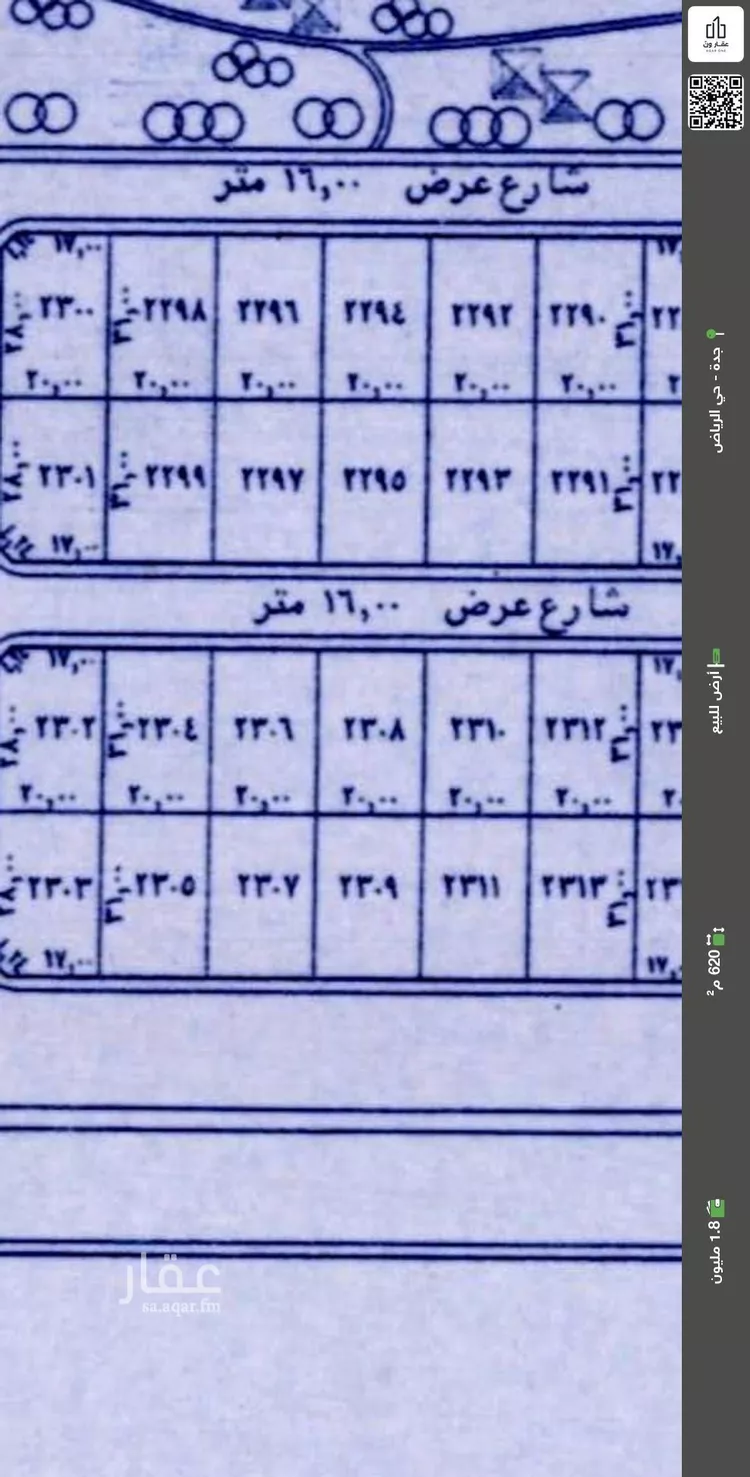 شارع عرض ١٦,٠٠ متر
١٧,٠٠
٢٣٠٠ ٢٢٩٨ ٢٢٩٦ ٢٢٩٤ ٢٢٩٢ ٢٢٩٠ ٢٢
٢٨,٠٠ ٣١,٠٠ ٣١,٠٠
٢٠,٠٠ ٢٠,٠٠ ٢٠,٠٠ ٢٠,٠٠ ٢٠,٠٠ ٢٠,٠٠
٢٣٠١ ٢٢٩٩ ٢٢٩٧ ٢٢٩٥ ٢٢٩٣ ٢٢٩١ ٢٢
٢٨,٠٠ ٣١,٠٠ ٣١,٠٠
١٧,٠٠ ١٧,
شارع عرض ١٦,٠٠ متر
١٧,٠٠ ١٧,
٢٣٠٢ ٢٣٠٤ ٢٣٠٦ ٢٣٠٨ ٢٣١٠ ٢٣١٢ ٢٣
٢٨,٠٠ ٣١,٠٠ ٣١,٠٠
٢٠,٠٠ ٢٠,٠٠ ٢٠,٠٠ ٢٠,٠٠ ٢٠,٠٠ ٢٠,٠٠ ٢٠
٢٣٠٣ ٢٣٠٥ ٢٣٠٧ ٢٣٠٩ ٢٣١١ ٢٣١٣ ٢٣
٢٨,٠٠ ٣١,٠٠ ٣١,٠٠
١٧,٠٠ ١٧,٠
عقار
sa.aqar.fm
عقار ون
جدة - حي الرياض
أرض للبيع
620 م²
1.8 مليون